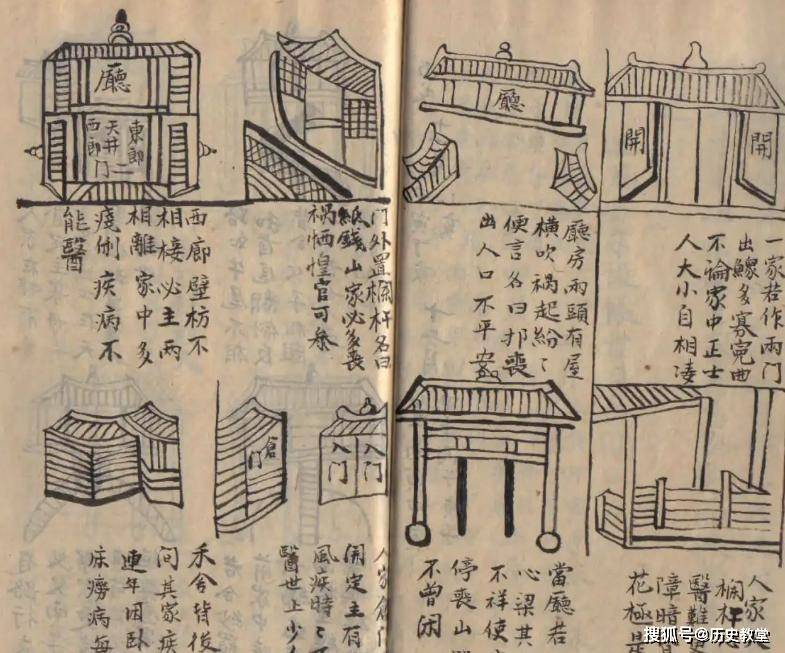 開
開
一家若作兩門
出鰥多寡寃曲
不論家中正士
人大小自相凌
廳
廳房兩頭有屋
橫吹禍起紛〻
便言名曰喪
出人口不平安
人家
醫難
障暗
花極是
當廳若
心梁其
不祥使
停喪山
不曾闲
門外置欄杆名曰
紙錢山家必多喪
禍恓惶官可參
廳
東郎
天井
西郎門
西廊壁枋不
相接必主兩
相離家中多
疾病不
能醫
入門
入門
倉門
人家倉門
開定主有
風疾時〻
醫世上少
禾舍背後
問其家疾
連年因卧
床癆病每
搜狐号@历史教堂